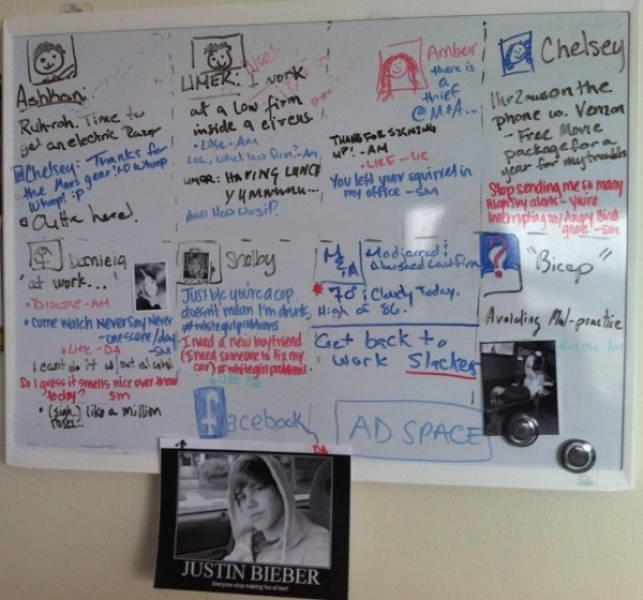 Ashhan:
Ruh-roh. Time to
get an electric Razor
@Chelsey: Thanks for
the Mars gear! :D Whoop
Whoop! :P
Outta here!
UMER: I work
at a law firm
inside a circus
• LIKE - AM
LOL, what law firm? - AM
UMER: HAVING LUNCH
YUMMMMM...
Amber
there is
a
thief
@ M&A...
THANKS FOR
UP! - AM
• LIKE - UC
You left your squirrel in
my office - SM
Chelsey
1hr 2 on the
phone w. Verizon
- Free Movie
package for a
year for my troubles
Stop sending me so many
alerts - you're
interrupting my Angry Birds
game - SM
Daniela
"at work..."
• DISLIKE - AM
• Come watch Never Say Never
- one scene/day
- SM
• Like - DA
I can't do it w/out alcohol
So I guess it smells nice over there
today? SM
• (sigh) like a million
roses...
Shelby
Just b/c you're a cop
doesn't mean I'm drunk.
#whitegirlproblems
I need a new boyfriend
(I need someone to fix my
car) #whitegirlproblems
M&A
Law firm
70°; Cloudy Today.
High of 86.
Get back to
work Slacker
?
"Bicep"
Avoiding Mal-practice
• Like - AM
facebook
AD SPACE
DA
JUSTIN BIEBER
Everyone stop making fun of her!